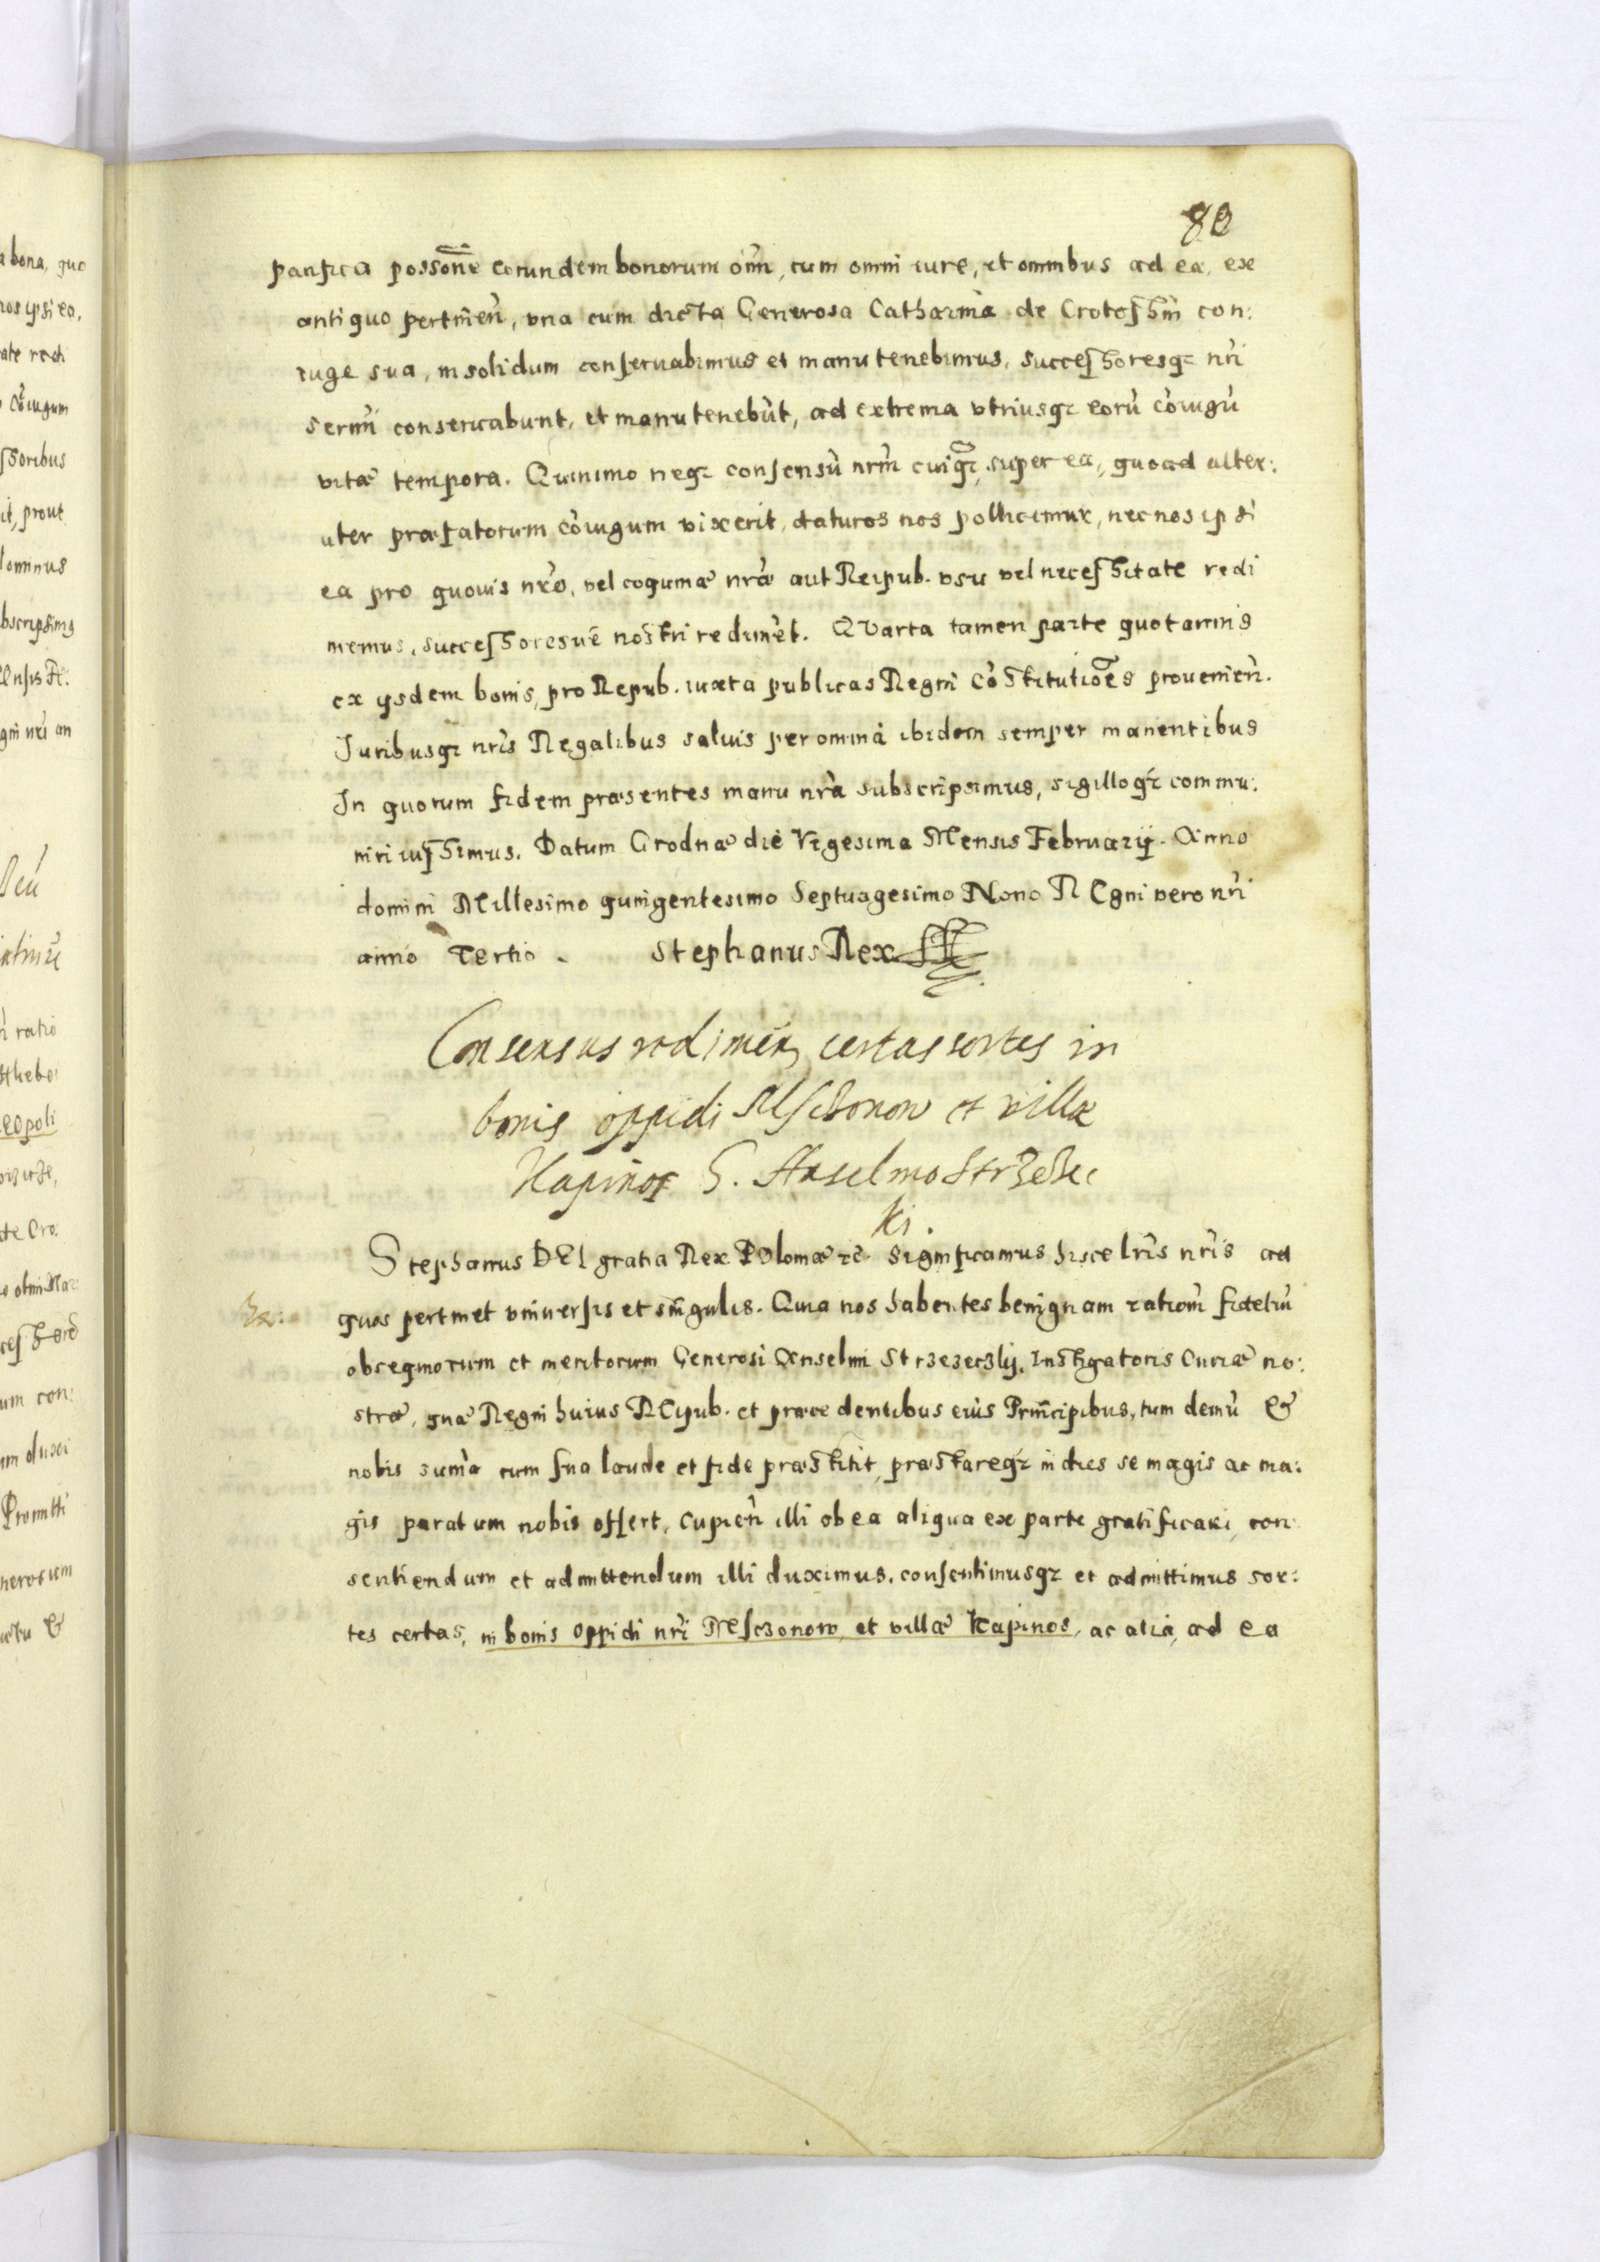 80
panfica possõne eorundem bonorum oĩm, cum omni iure, et omnibus ad ea, ex
antiquo pertineñ, vna cum dicta Generosa Catharina de Crotoſzin con:
iuge sua, in solidum conſeruabimus et manutenebimus, succeſsoresqz nři
sermĩ conseruabunt, et manutenebũt, ad extrema vtriusqz eorũ cõiugũ
vitæ tempora. Quinimo neqz conſensũ nřm cuiqz super ea, quoad alter:
uter præfatorum cõiugum vixerit, daturos nos pollicemur, nec nos ipsi
ea pro quouis nřo, vel cognatæ nřæ aut Reipub. vsu vel neceſsitate redi
memus, succeſsoresue nostri rediment. QVarta tamen parte quotannis
ex ysdem bonis, pro Repub. iuxta publicas Regni Cõstitutiões prouenieñ.
Juribusqz nřis Regalibus saluis per omnia ibidem semper manentibus
In quorum fidem præsentes manu nřa subscripsimus, sigilloqz commu:
niri iuſsimus. Datum Grodnæ die Vigesima Mensis Februarij. Anno
domini Millesimo quingentesimo Septuagesimo Nono REgni vero nři
anno Tertio. Stephanus Rex
Consensus redimeñ certas sortes in
bonis oppidi Mſczonow et villæ
Kapinos G. Anselmo Strzezec
ki.
Stephanus DEI gratia Rex POloniæ zc Significamus hisce lřis nřis ad
quos pertinet vniuerſis et singulis. Quia nos habentes benignam rationẽ fideliũ
obsequiorum et meritorum Generosi Anselmi Strzezeczky, Instigatoris Curiæ no:
stræ, quæ Regni huius REipub. et præcedentibus eius Principibus, tum demũ &
nobis summa cum ſua laude et fide præstitit, præstareqz in dies se magis ac ma:
gis paratum nobis offert, Cupieñ illi ob ea aliqua ex parte gratificari, con:
sentiendum et admittendum illi duximus, conſentimusqz et admittimus sor:
tes certas, in bonis oppidi nři Mſczonow, et villæ Kapinos, ac alia, ad ea